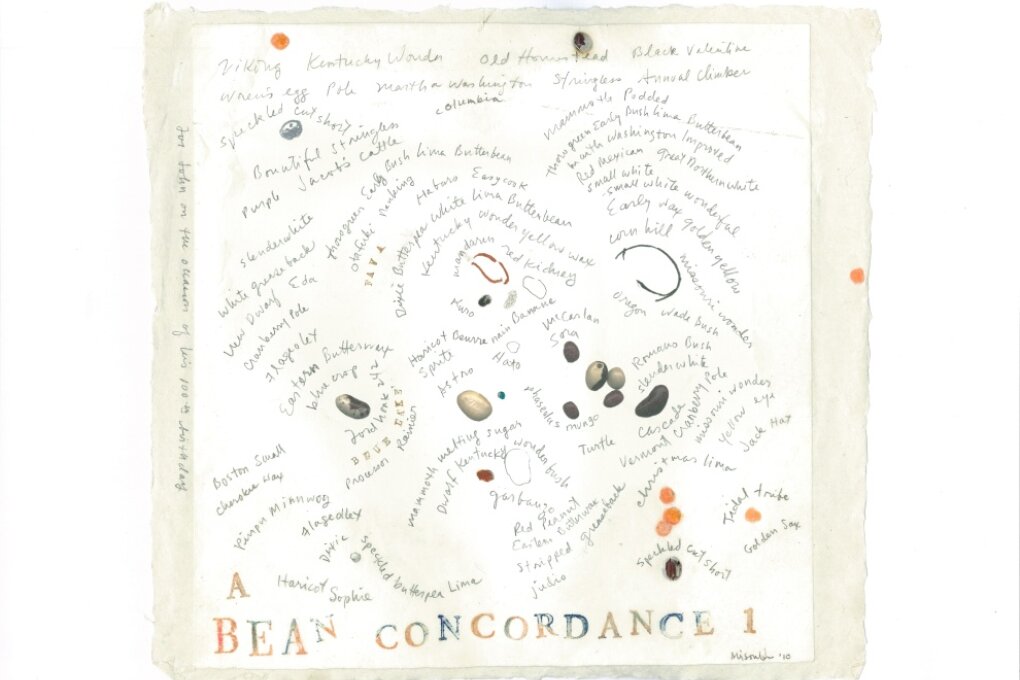 Viking Kentucky Wonder Old Homestead Black Valentine
Wren's egg Pole Martha Washington Stringless Annual Climber
Columbia
speckled cut short
Bountiful Stringless
Purple Jacob's Cattle
Mammoth Podded
Thorogreen Early Bush Lima Butterbean
Washington Improved
Red Mexican Great Northern white
small white
small white wonderful
Early wax golden yellow
corn hill
missouri wonder
oregon wade bush
Thorogreen Early Bush Lima Butterbean
Habaro Easycook
FAVA
Dixie Butterpea White Lima Butterbean
Kentucky wonder yellow wax
mandarin red Kidney
slenderwhite
White greaseback
New Dwarf Eda
Cranberry Pole
Flageolet
Eastern Butterwax
blue crop
Fordhook 242
BLUE LAKE
Processor Rainier
Haricot Beurre nain Banane
Sprite
Astro
Hato
McCarlan
Sora
Romano Bush
slenderwhite
Cascade
Cranberry Pole
missouri wonder
Yellow eye
Jack Hat
Vermont
Christmas lima
phaseolus mungo
Turtle
mammoth melting sugar
Dwarf Kentucky wonder bush
garbanzo
Red Peanut
Eastern Butterwax
Stripped greaseback
judio
Boston Small
Cherokee Wax
Alagedlex
Dixie
speckled butterpea Lima
Haricot Sophie
Tidal tribe
Golden Sax
speckled cut short
for John on the occasion of his 100th birthday
A
BEAN CONCORDANCE 1
'10